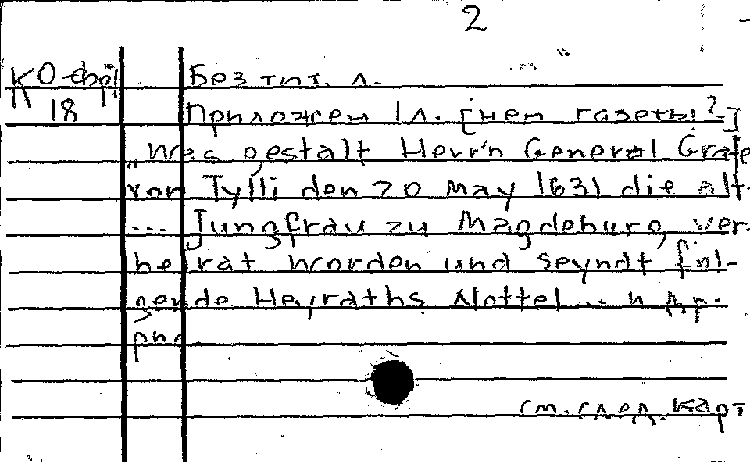 2
КО фрl
18
Без тит. л.
Приложен 1 л. [нем газеты?]
„Was gestalt Herr'n General Grafe
von Tylli den 20 May 1631 die alt-
... Jungfrau zu Magdeburg ver-
heirat worden und seyndt fol-
gende Heyraths Nottel ... и др.
рис.
см. след. карт